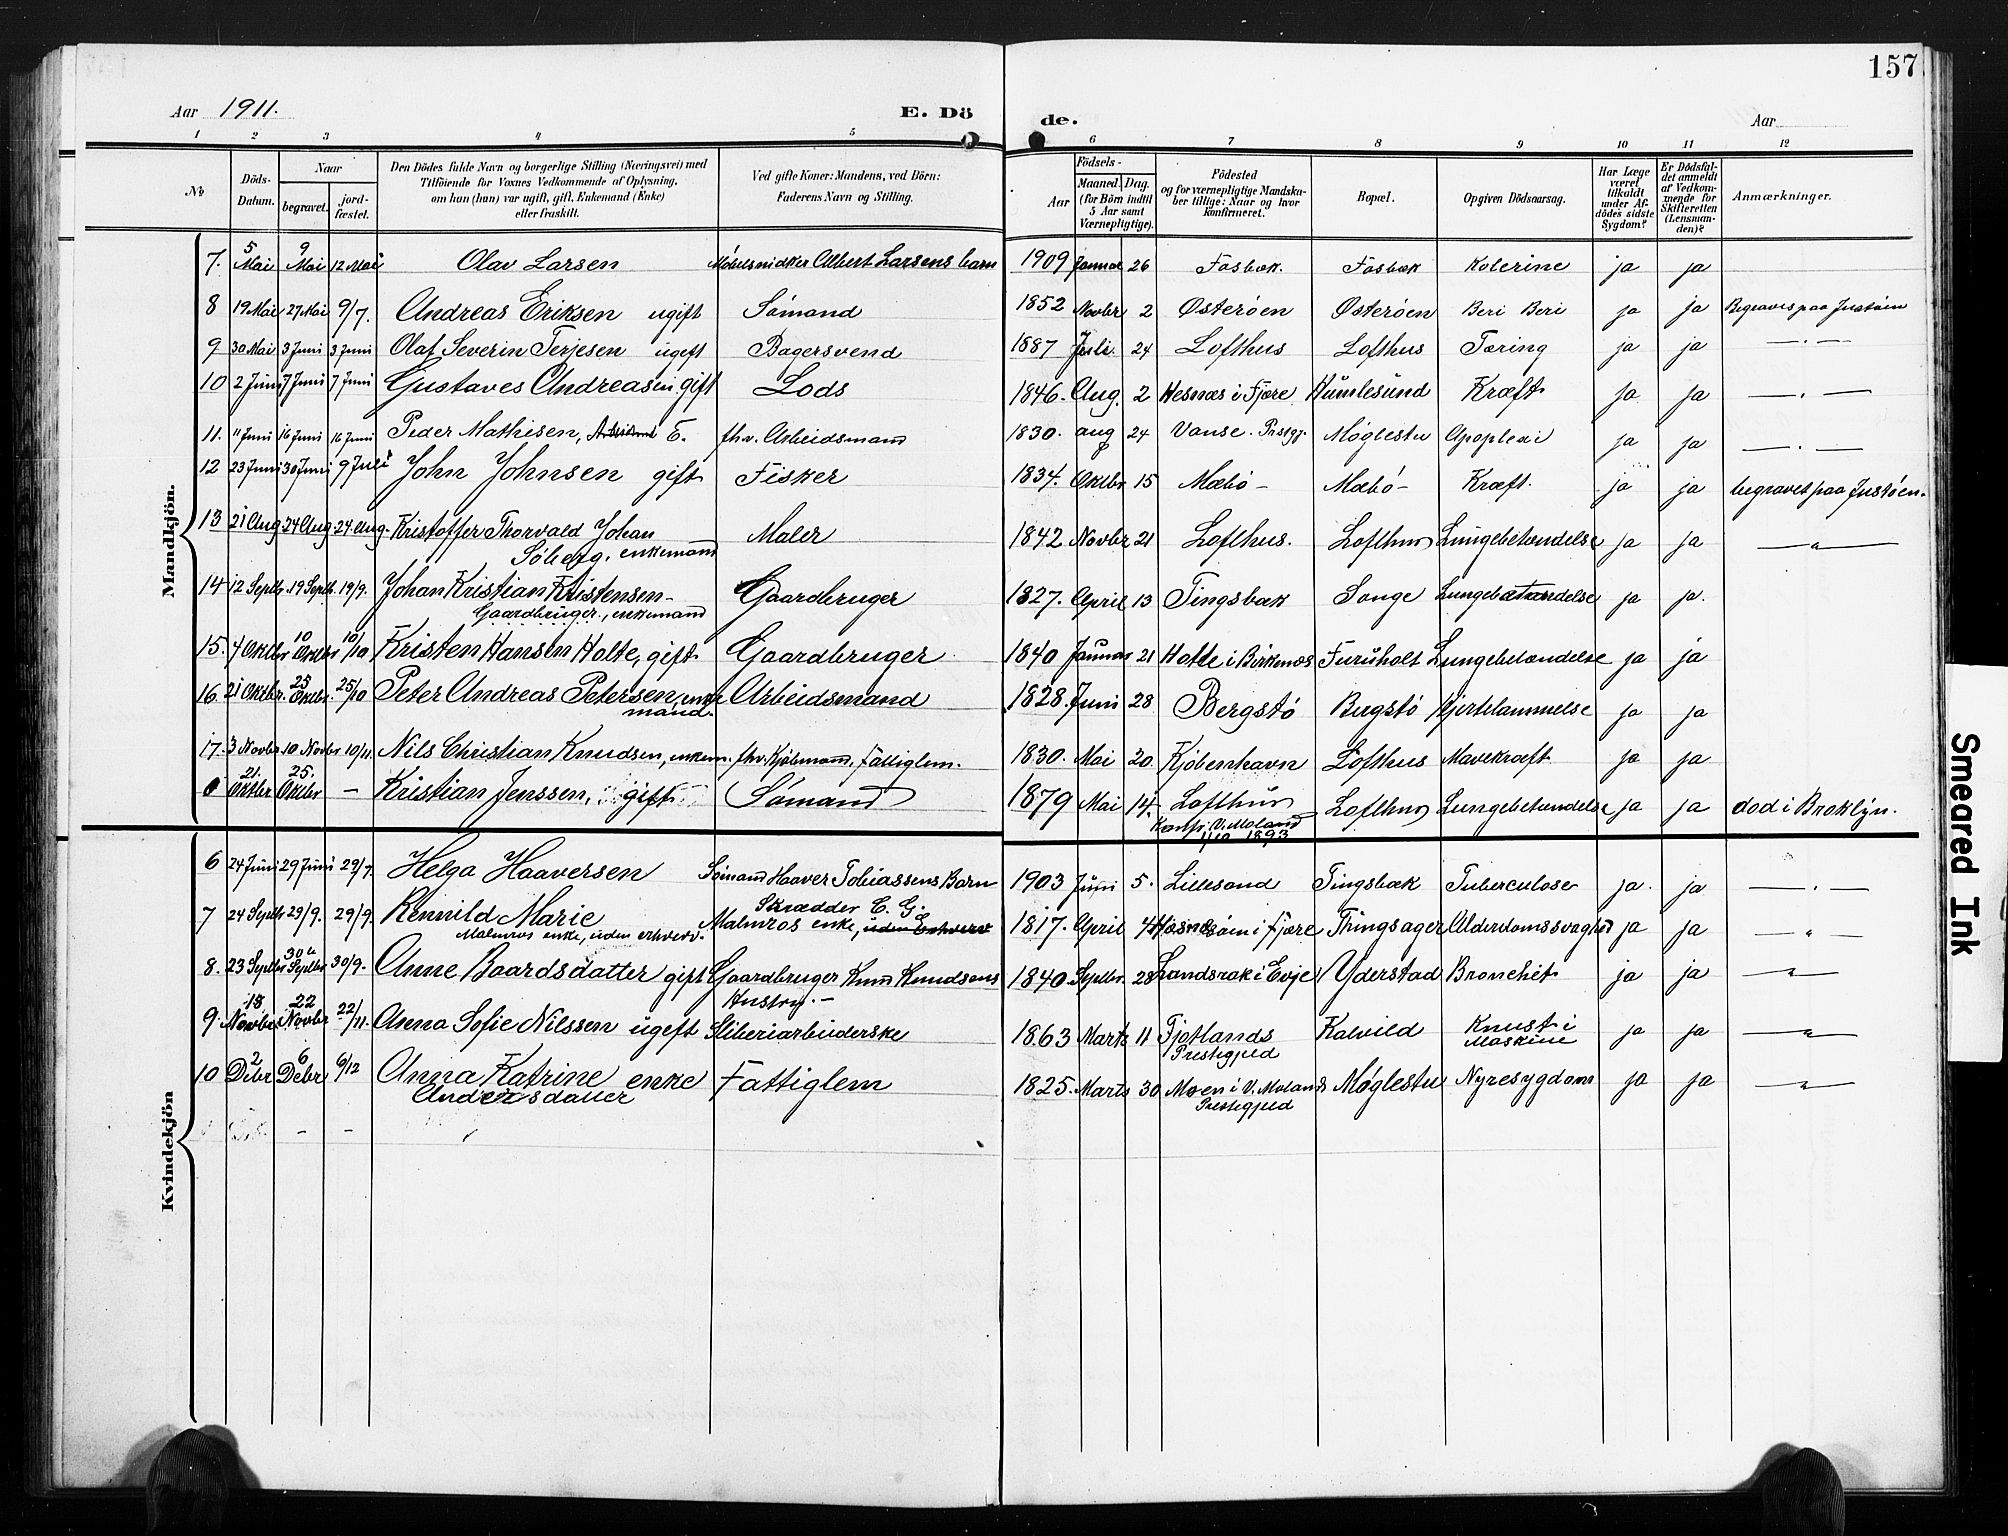 157
Aar 1911. E. Dö de. Aar
1 2 3 4 5 6 7 8 9 10 11 12
No Döds-Datum. Naar begravet. jord-fæstet. Den Dödes fulde Navn og borgerlige Stilling (Næringsvei) med Tilföiende for Voxnes Vedkommende af Oplysning, om han (hun) var ugift, gift, Enkemand (Enke) eller fraskilt. Ved gifte Koner: Mandens, ved Börn: Faderens Navn og Stilling. Födsels- Aar Maaned. Dag. (for Börn indtil 5 Aar samt Værnepligtige). Födested og for værnepligtige Mandskaber tillige: Naar og hvor konfirmeret. Bopæl. Opgiven Dödsaarsag. Har Læge været tilkaldt under Afdödes sidste Sygdom? Er Dödsfaldet anmeldt af Vedkommende for Skifteretten (Lensmanden)? Anmærkninger.
Mandkjön.
7. 5 Mai 9 Mai 12 Mai Olav Larsen Möbelsnidker Albert Larsens barn 1909 Januar 26 Fosbæk. Fosbæk Kolerine ja ja
8 19 Mai 27 Mai 9/7. Andreas Eriksen ugift Sømand 1852 Novbr 2 Østerøen Østerøen Beri Beri ja ja Begraves paa Justøen
9 30 Mai 3 Juni 3 Juni Olaf Severin Terjesen ugift Bagersvend 1887 Juli 24 Lofthus Lofthus Tæring ja ja —.—
10 2 Juni 7 Juni 7 Juni Gustaves Andreasen gift Lods 1846. Aug. 2 Hesnæs i Fjære Humlesund Kræft ja ja —.—
11. 11 Juni 16 Juni 16 Juni Peder Mathisen, E. fhv. Arbeidsmand 1830. aug 24 Vanse Prstgj. Møglestu Apoplexi ja ja —.—
12 23 Juni 30 Juni 9 Juli John Johnsen gift Fisker 1834. Oktbr 15 Mæbø – Mæbø – Kræft. ja ja begravet paa Justøen.
13 21 Aug 24 Aug 24. aug. Kristoffer Thorvald Johan Maler 1842 Novbr 21 Lofthus. Lofthus Lungebetændelse ja ja —"—
Söberg, enkemand
14 12 Septbr. 19 Septb. 19/9. Johan Kristian Kristensen – Gaardbruger 1827. April 13 Tingsbæk Songe Lungebetændelse ja ja.
Gaardbruger, enkemand
15. 4 Oktbr 10 Oktbr 10/10 Kristen Hansen Holte, gift Gaardbruger 1840 Januar 21 Holte i Birkenæs Furuholt Lungebetændelse ja ja
16. 21 Oktbr. 25 Oktbr. 25/10 Peter Andreas Petersen, enke Arbeidsmand 1828. Juni 28 Bergstö Bergstö Hjertelammelse ja ja
mand.
17. 3 Novbr 10 Novbr 10/11. Nils Christian Knudsen, enkem. fhv. Kjøbmand, fattiglem. 1830. Mai 20. Kjöbenhavn Lofthus Mavekræft ja ja
0 21. Oktbr 25. Oktbr — Kristian Jenssen, gift Sømand 1879 Mai 14. Lofthus Lofthus Lungebetændelse ja ja død i Broklyn.
Konfr. V. Moland
1/10 1893
Kvindekjön
6 24 Juni 29 Juni 29/7. Helga Haaversen Sømand Haaver Tobiassens Barn 1903 Juni 5. Lillesand Tingsbæk Tuberculose ja. ja —.—
7 24 Septbr 29/9. 29/9. Kennild Marie Skrædder C. G. Malmros enke, uden Erhverv 1817. April 4 i Fjære Thingsager Alderdomssvaghed ja ja —"—
Malmros enke, uden erhverv.
8. 23 Septbr 30te Septbr 30/9. Anne Baardsdatter gift Gaardbruger Knud Knudsens 1840. Septbr. 28 Landsrak i Evje Yderstad Bronchit ja ja —"—
Hustru. –
9. 18 Novbr 22 Novbr 22/11. Anna Sofie Nilssen ugift Sliberiarbeiderske 1863 Marts 11 Fjotlands Kalvild Knust i ja ja —"—
Prestegjeld Maskine
10 2 Debr 6 Debr 6/12 Anna Katrine enke Fattiglem 1825. Marts 30 Moen i V. Molands Møglestu Nyresygdom ja ja —"—
Andersdatter Prestegjeld
Smeared Ink